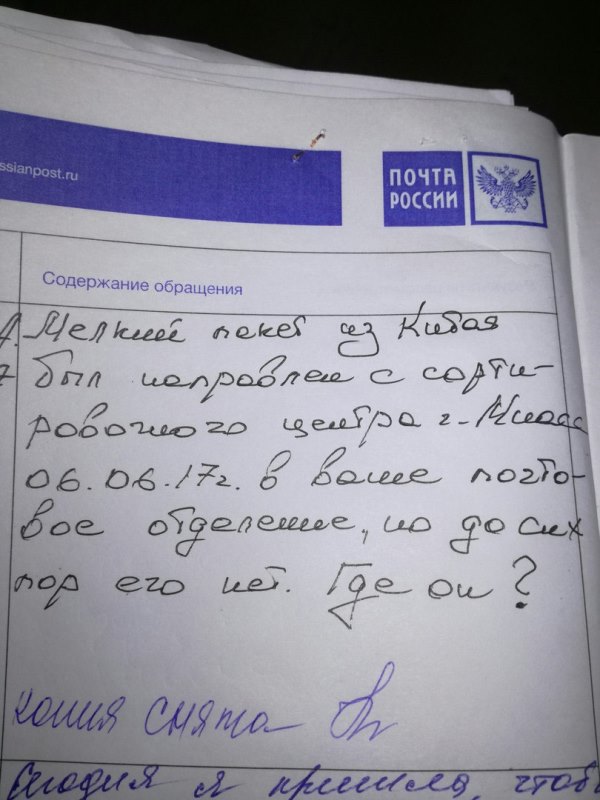 ssianpost.ru
ПОЧТА
РОССИИ
Содержание обращения
Мелкий пакет из Китая
был направлен с сорти-
ровочного центра г. Миасс
06.06.17г. в ваше почто-
вое отделение, но до сих
пор его нет. Где он?
копия снята
Сегодня я пришла, чтобы